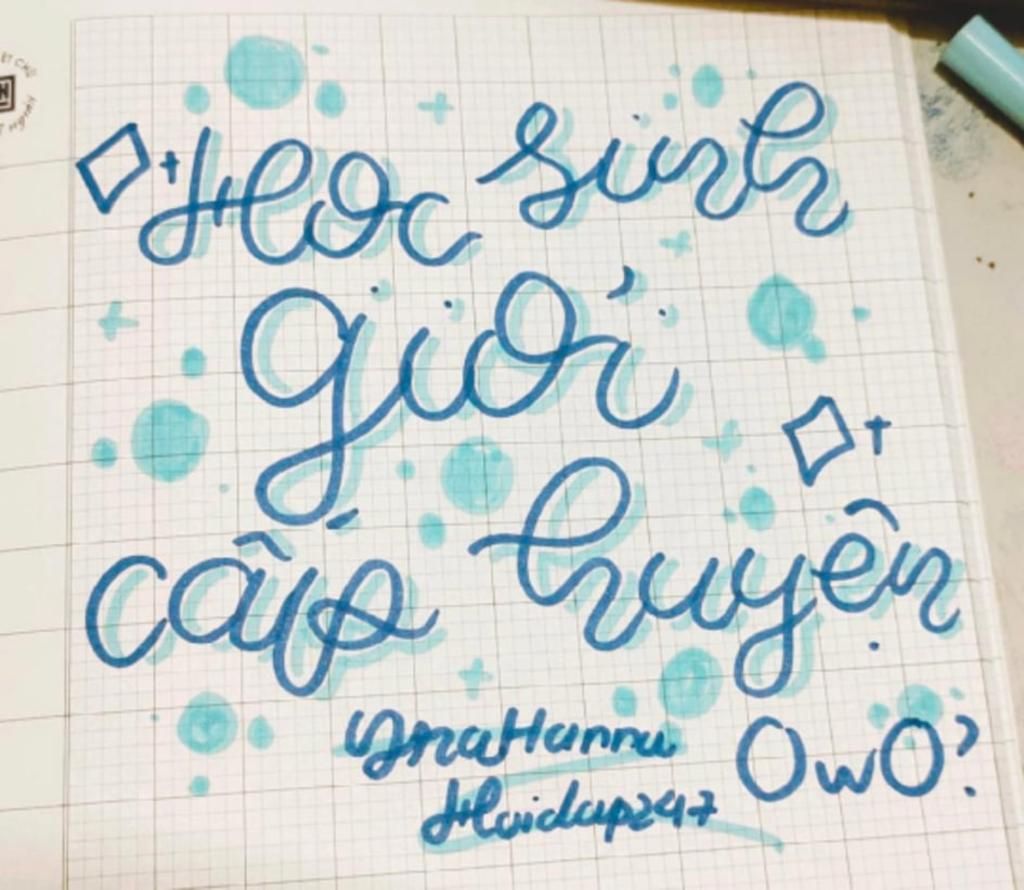 Học sinh
giỏi
cấp huyện
OwO?
Hoidap247